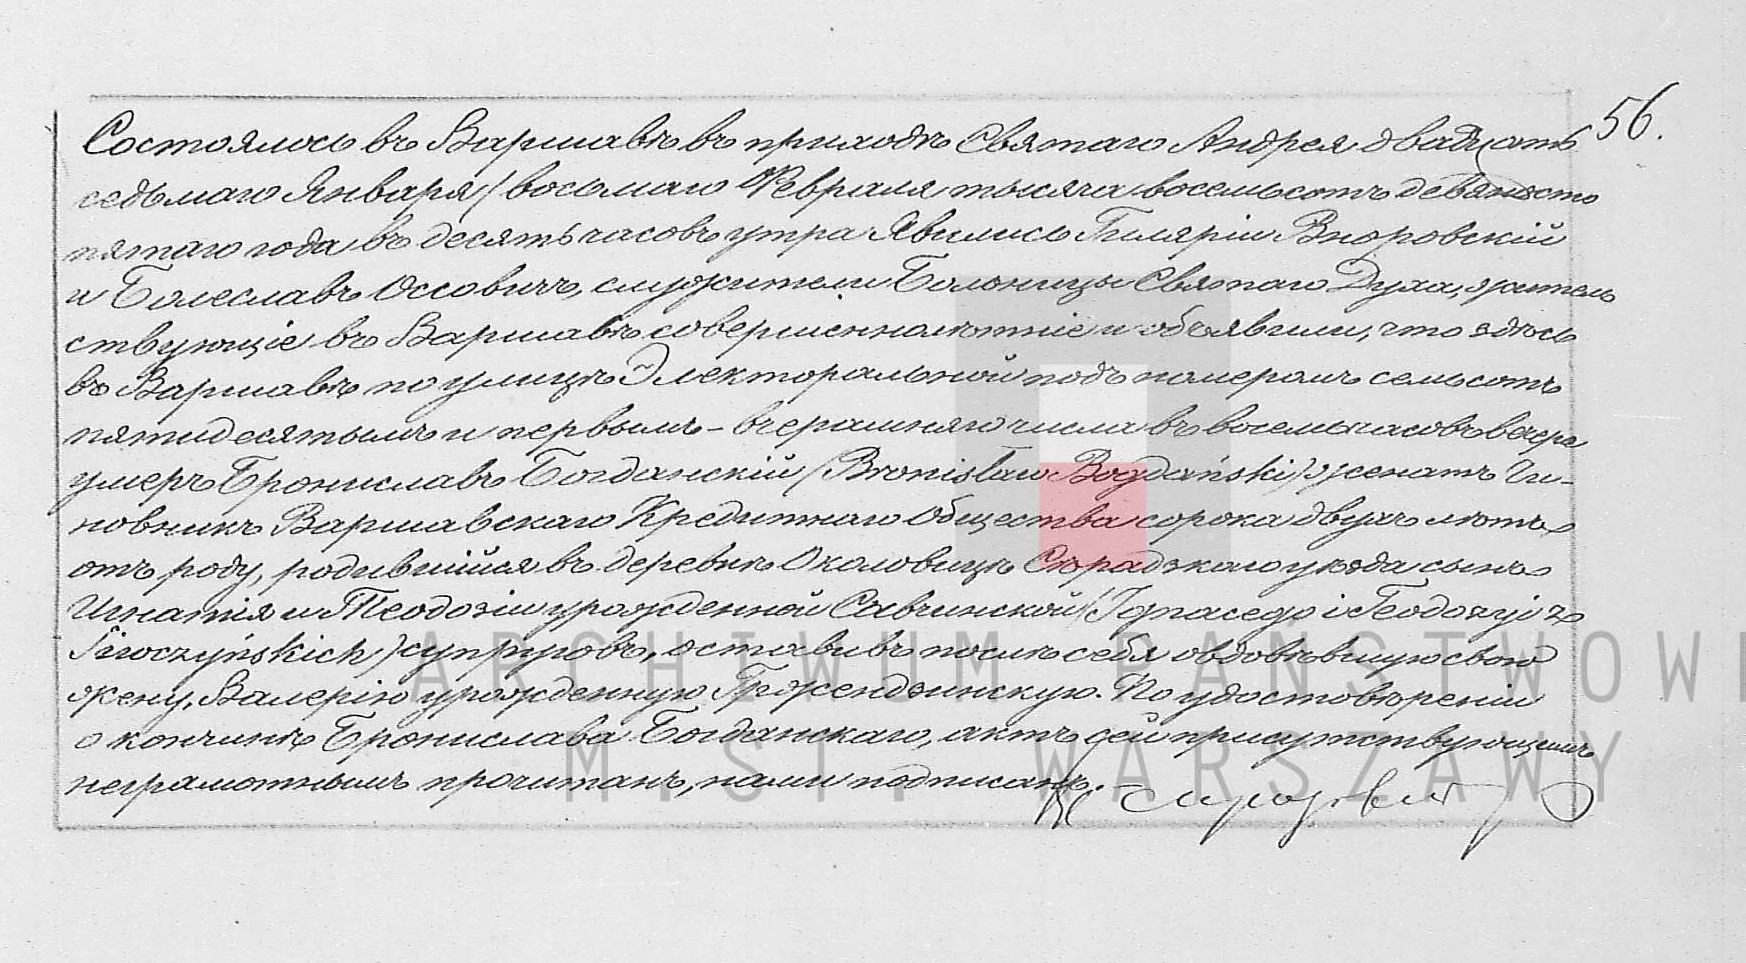 56.
Состоялось въ Варшавѣ въ приходѣ Святаго Андрея двадцать
седьмаго Января / восьмаго Февраля тысяча восемьсотъ девяносто
пятаго года въ десять часовъ утра Явились Гиляріи
и Болеславъ Оссовичъ, служители Больницы Святаго Духа, житель
ствующіе въ Варшавѣ совершеннолѣтніе и объявили, что здѣсь
въ Варшавѣ по улицѣ Электоральной подъ номеромъ семьсотъ
пятидесятымъ и первымъ – вчерашняго числа въ восемь часовъ вечера
умеръ Брониславъ Богданскій (Bronisław Bogdański) женатъ Чи-
новникъ Варшавскаго Кредитнаго Общества сорока двухъ лѣтъ
отъ роду, родившійся въ деревнѣ Околовицѣ Сѣрадзкаго уѣзда сынъ
Игнатія и Теодозіи урожденной (Ignacego i Teodozyi z
) супруговъ, оставивъ послѣ себя овдовѣвшую свою
жену, Валерію урожденную Гржендзинскую. По удостовѣреніи
о кончинѣ Бронислава Богданскаго, актъ сей присутствующимъ
неграмотнымъ прочитанъ, нами подписанъ.
ARCHIWUM PAŃSTWOW
M. ST. WARSZAWY